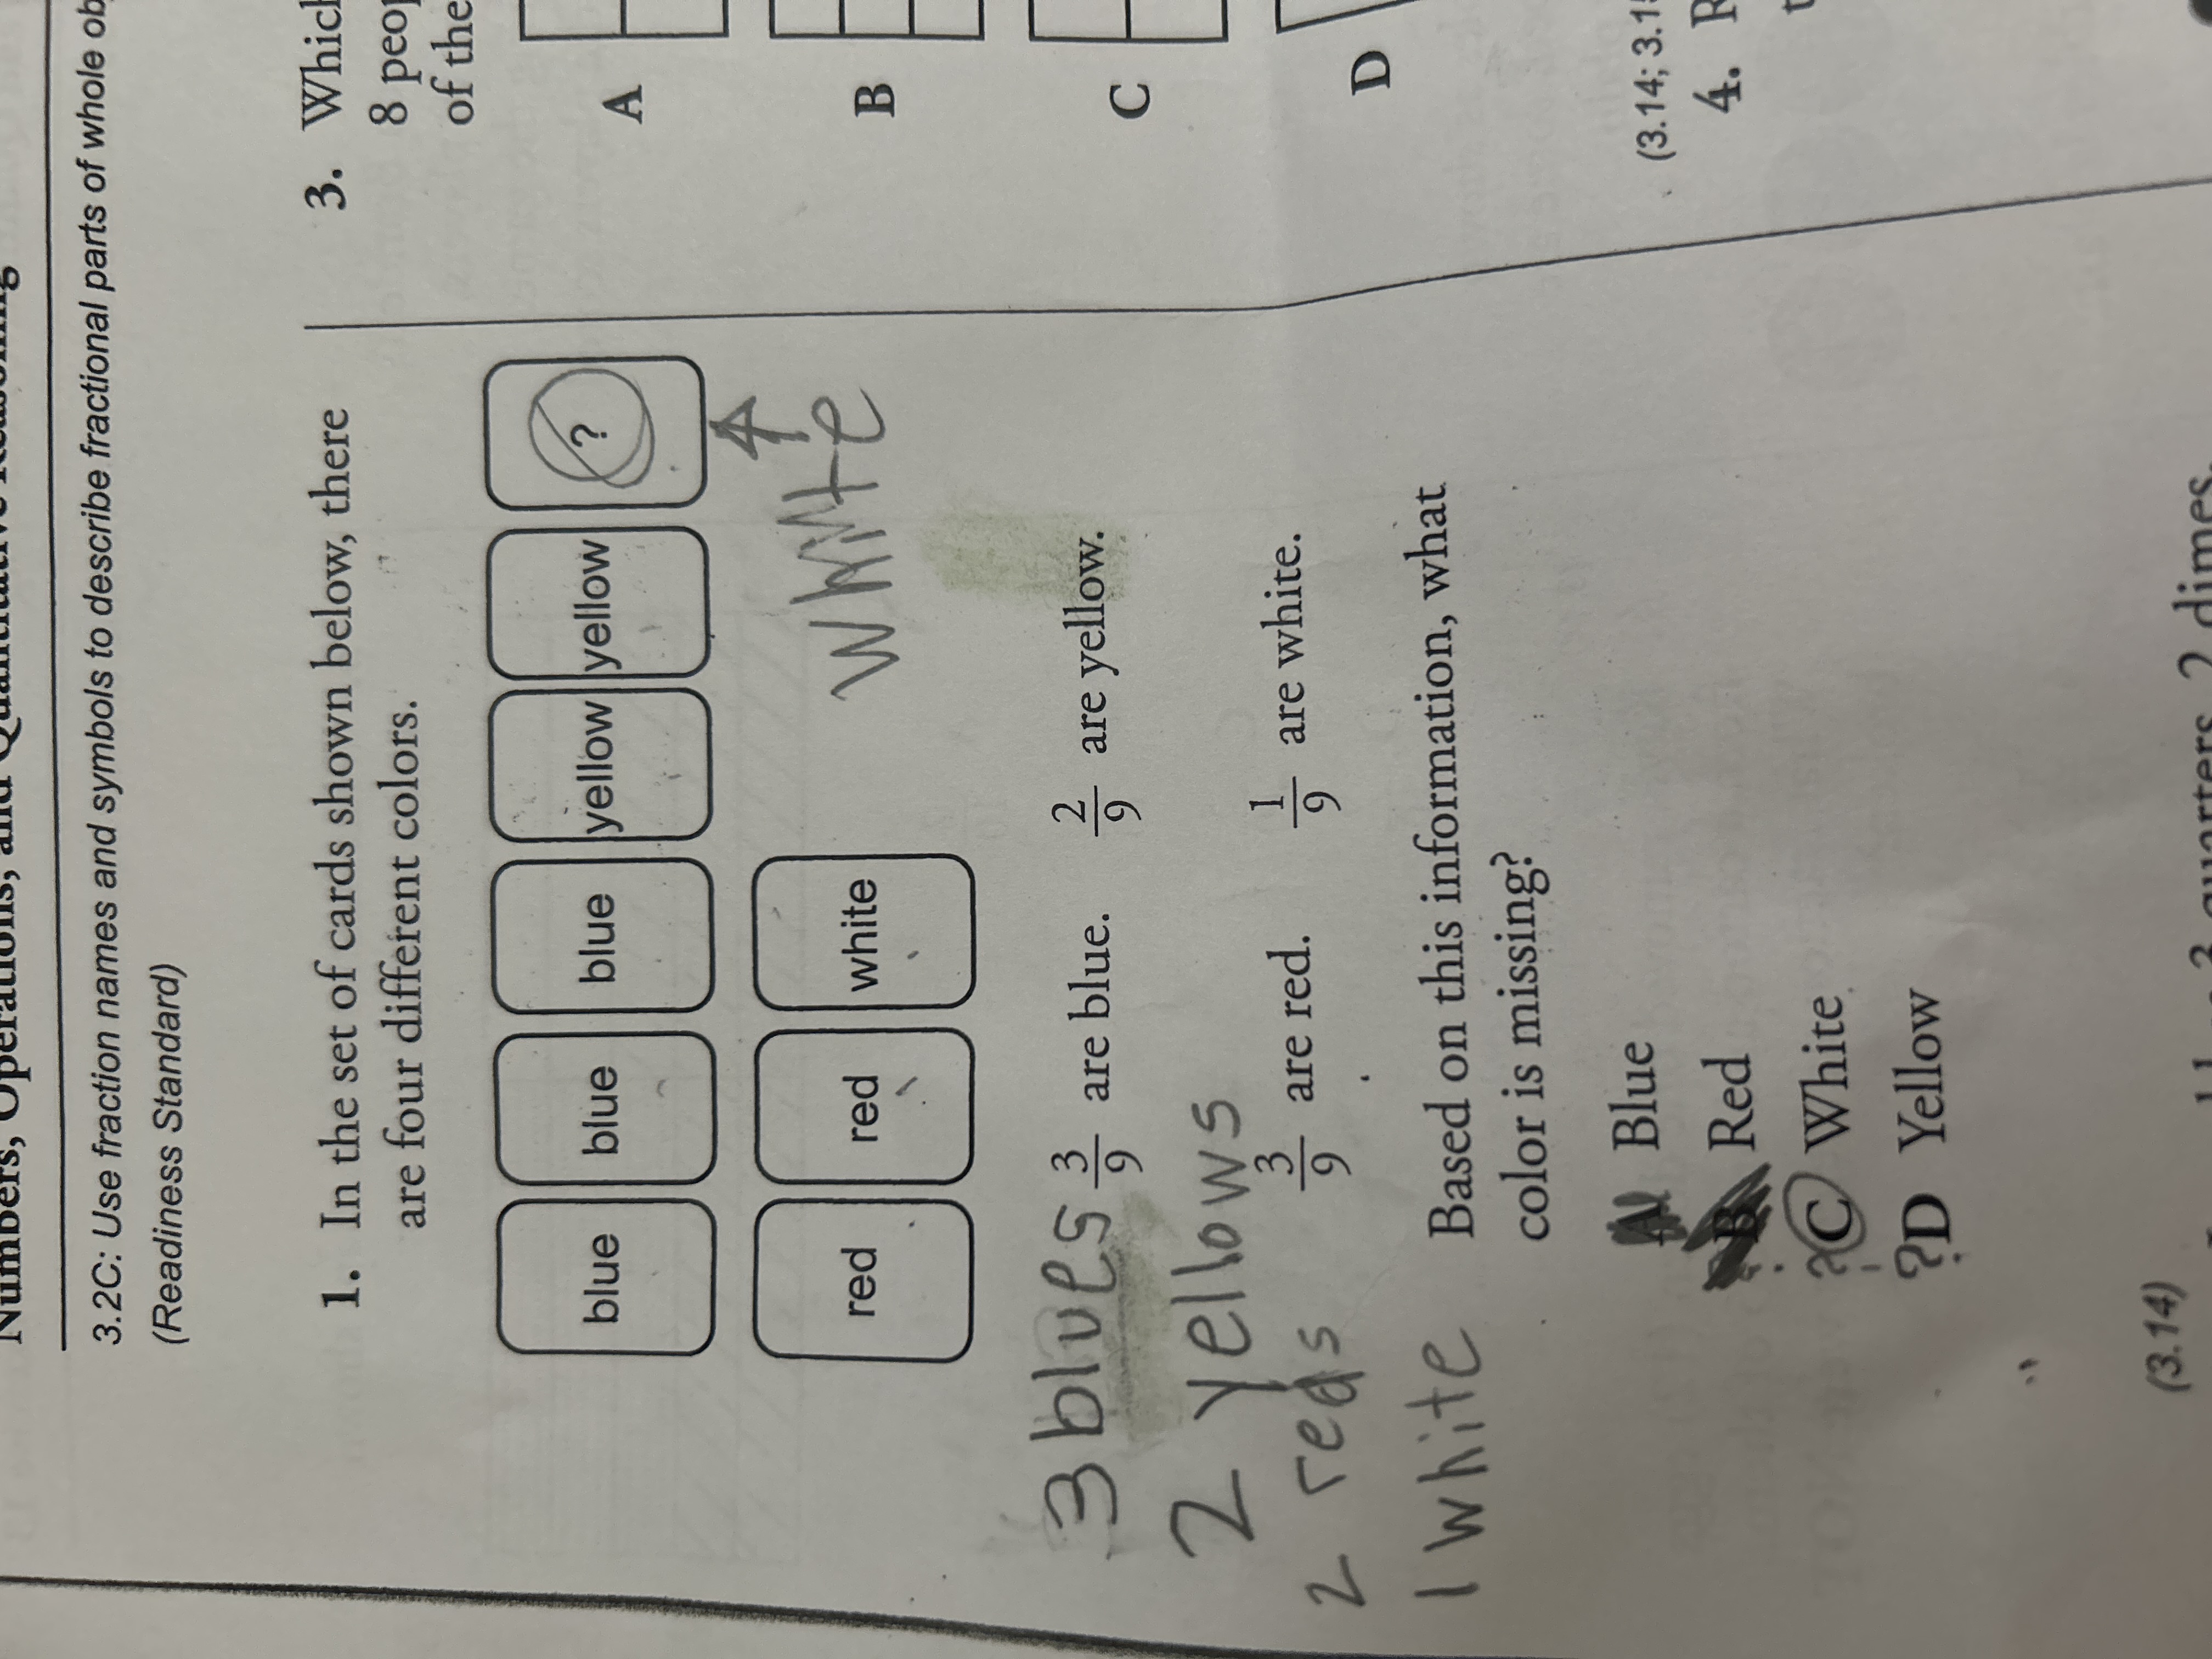 Numbers, Operations, and Quantitative Reasoning
3.2C: Use fraction names and symbols to describe fractional parts of whole
(Readiness Standard)
1. In the set of cards shown below, there
are four different colors.
blue blue blue yellow yellow ?
red red white
white
3 blues
2 yellows
2 reds
1 white
3/9 are blue. 2/9 are yellow.
3/9 are red. 1/9 are white.
Based on this information, what
color is missing?
A Blue
B Red
? C White
? D Yellow
(3.14)
3 quarters, 2 dimes,
3. Which
8
of the
A
B
C
D
(3.14;
4.